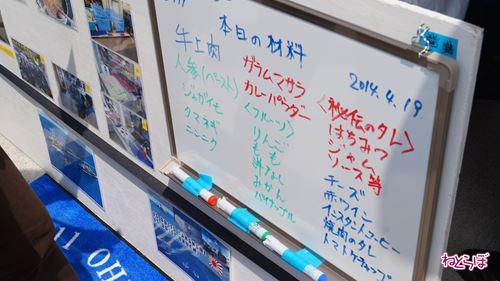 本日の材料
2014.4.19
牛上肉
人参(ペースト)
ジャガイモ
タマネギ
ニンニク
ガラムマサラ
カレーパウダー
<フルーツ>
りんご
もも
洋なし
みかん
パイナップル
<秘伝のタレ>
はちみつ
ジャム
ソース等
チーズ
赤ワイン
インスタントコーヒー
焼肉のタレ
トマトケチャップ
ねとらぼ